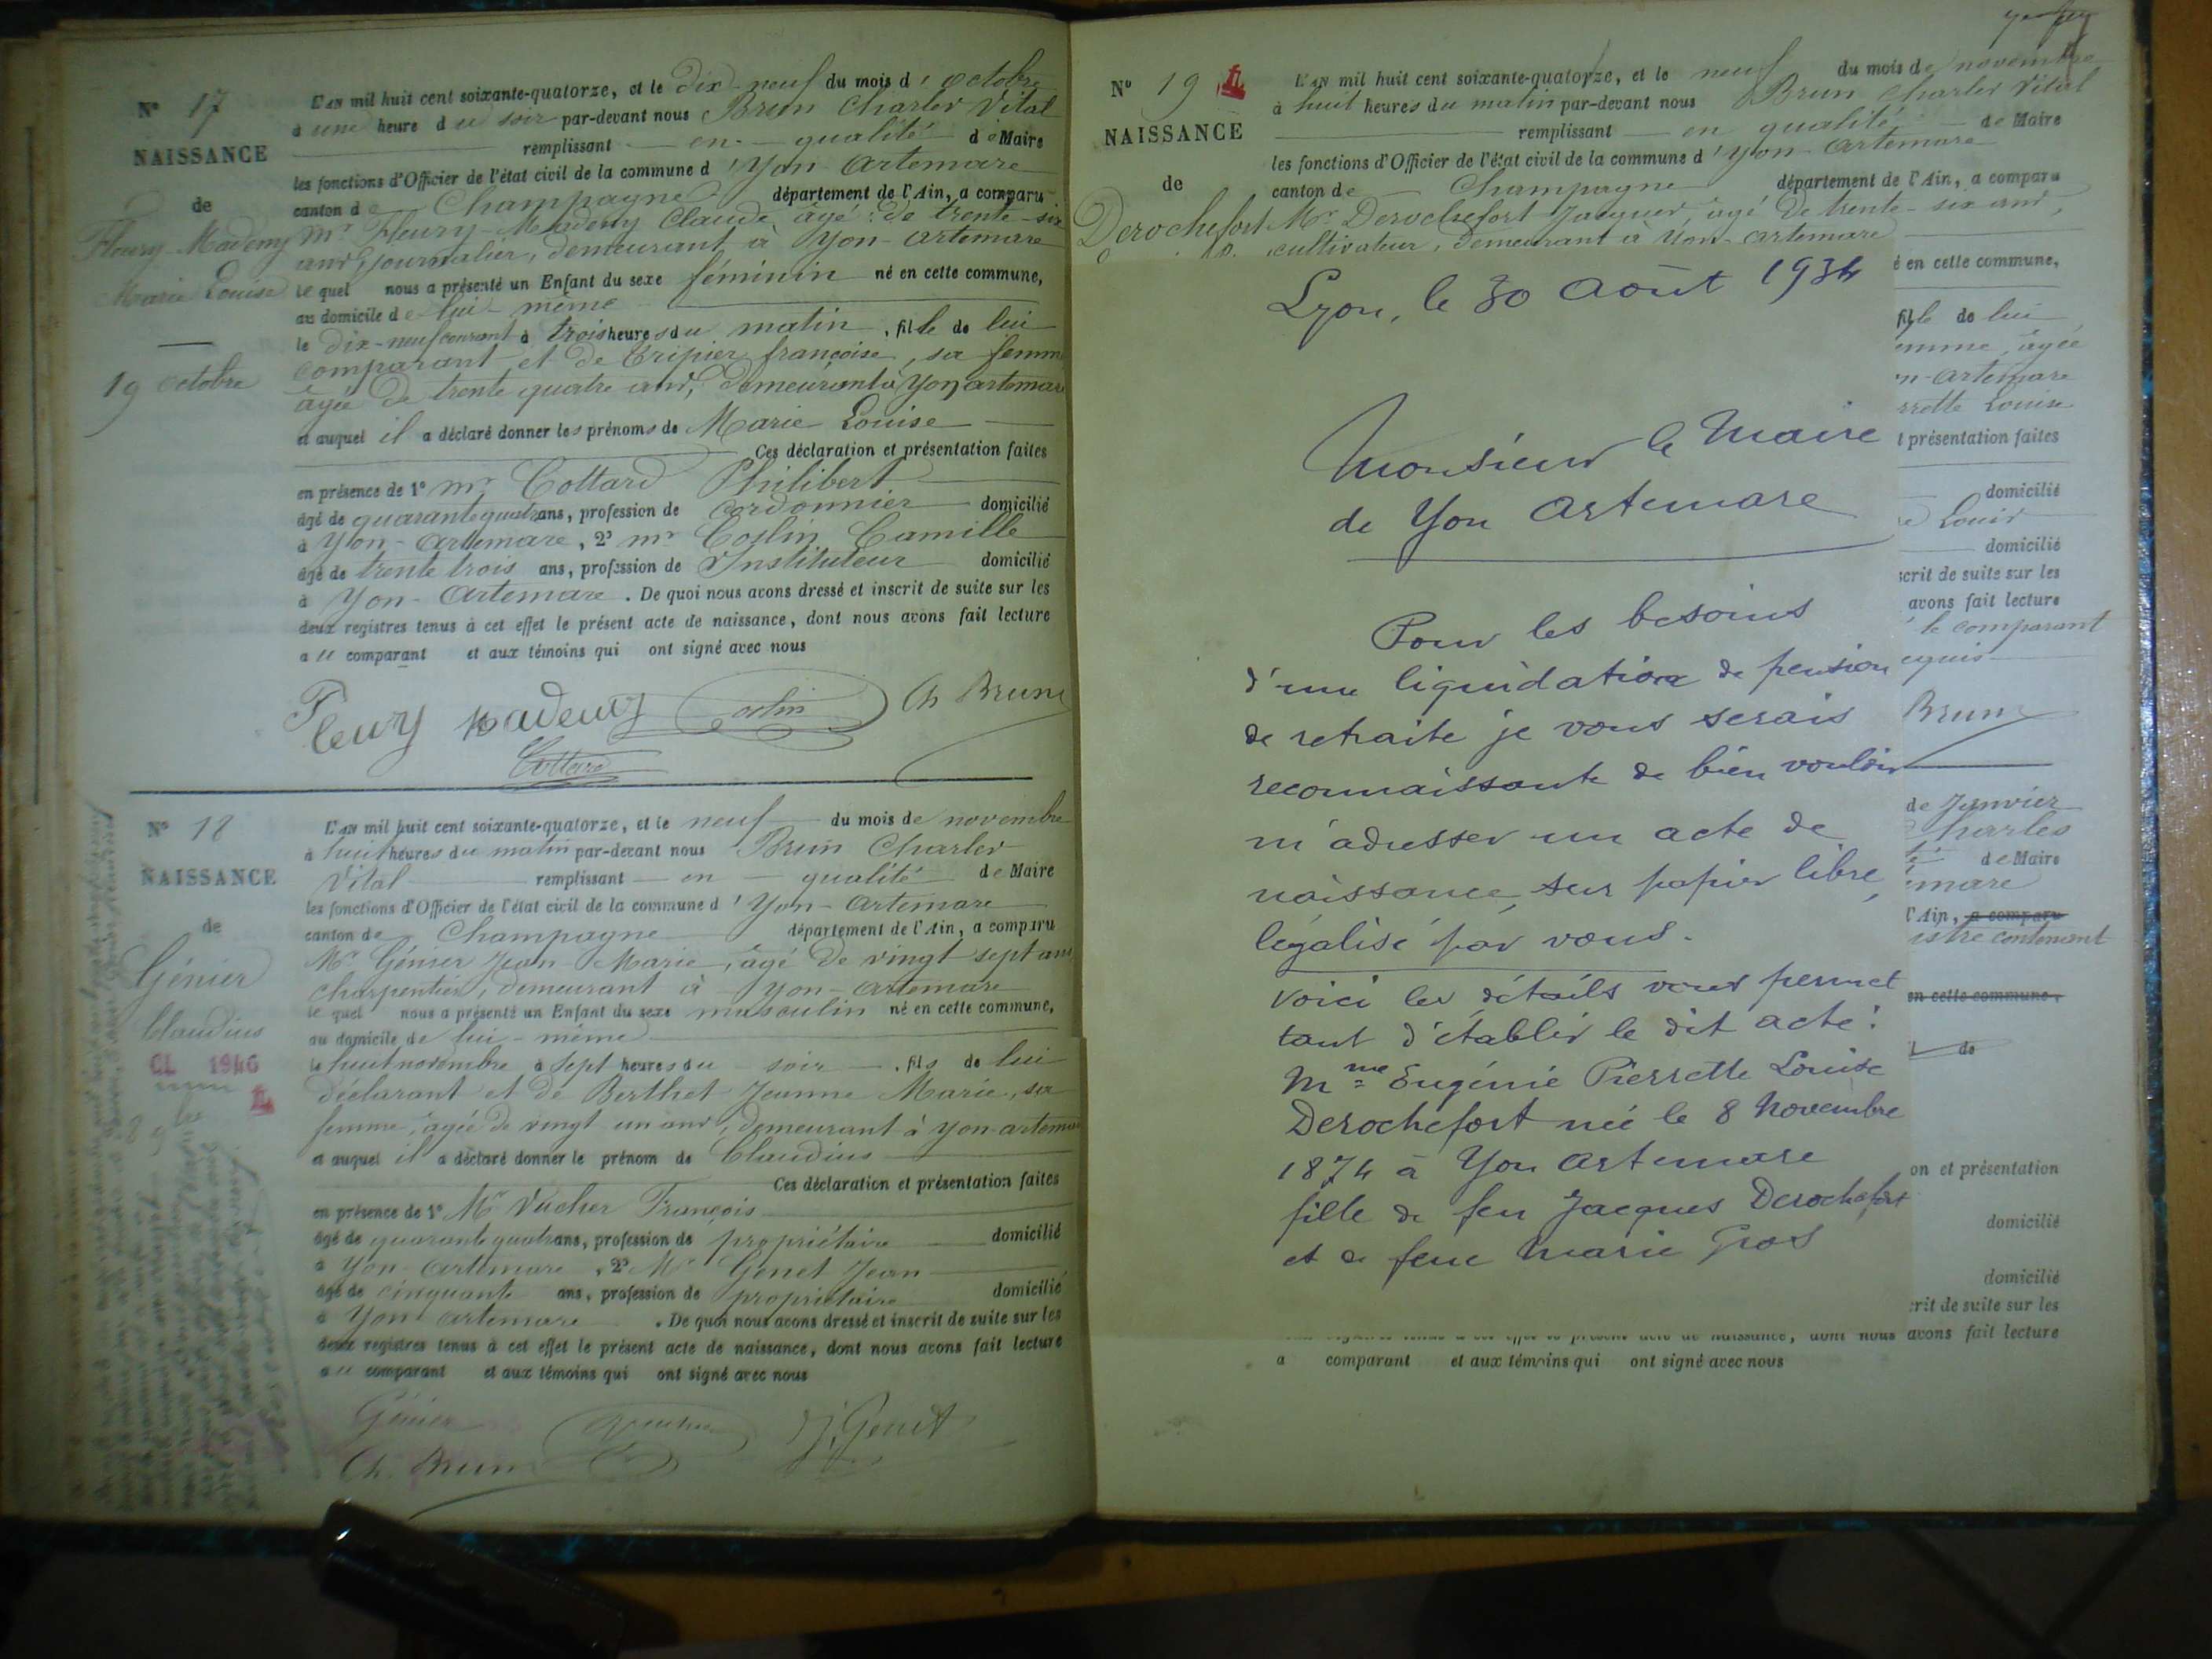 N° 17
NAISSANCE
de
Fleury-Mademy
Marie Louise
19 octobre
L'AN mil huit cent soixante-quatorze, et le dix-neuf du mois d'octobre
à une heure du soir par-devant nous Brun Charles Vital
remplissant en qualité de Maire
les fonctions d'Officier de l'état civil de la commune d'Yon-Artemare
canton de Champagne département de l'Ain, a comparu
Mr Fleury-Mademy Claude âgé de trente-six
ans, journalier, demeurant à Yon-Artemare
lequel nous a présenté un Enfant du sexe féminin né en cette commune,
au domicile de lui-même
le dix-neuf courant à trois heures du matin, fille de lui
comparant et de Tripier françoise, sa femme
âgée de trente quatre ans, demeurant à Yon artemare
et auquel il a déclaré donner les prénoms de Marie Louise
Ces déclaration et présentation faites
en présence de 1° mr Cottard Philibert
âgé de quarante quatre ans, profession de cordonnier domicilié
à Yon-Artemare, 2° mr Coslin Camille
âgé de trente trois ans, profession de Instituteur domicilié
à Yon-Artemare. De quoi nous avons dressé et inscrit de suite sur les
deux registres tenus à cet effet le présent acte de naissance, dont nous avons fait lecture
au comparant et aux témoins qui ont signé avec nous
Fleury Mademy Coslin Ch Brun
Cottard
N° 18
NAISSANCE
de
Génier
Claudius
1946
L'AN mil huit cent soixante-quatorze, et le neuf du mois de novembre
à huit heures du matin par-devant nous Brun Charles
Vital remplissant en qualité de Maire
les fonctions d'Officier de l'état civil de la commune d'Yon-Artemare
canton de Champagne département de l'Ain, a comparu
Mr Génier Jean-Marie, âgé de vingt sept ans
charpentier, demeurant à Yon-Artemare
lequel nous a présenté un Enfant du sexe masculin né en cette commune,
au domicile de lui-même
le huit novembre à sept heures du soir, fils de lui
déclarant et de Berthet Jeanne Marie, sa
femme, âgée de vingt un ans, demeurant à Yon-artemare
et auquel il a déclaré donner le prénom de Claudius
Ces déclaration et présentation faites
en présence de 1° Mr Vucher François
âgé de quarante quatre ans, profession de propriétaire domicilié
à Yon-Artemare, 2° Mr Genet Jean
âgé de cinquante ans, profession de propriétaire domicilié
à Yon artemare. De quoi nous avons dressé et inscrit de suite sur les
deux registres tenus à cet effet le présent acte de naissance, dont nous avons fait lecture
au comparant et aux témoins qui ont signé avec nous
Génier Vucher J. Genet
Ch. Brun
N° 19
NAISSANCE
de
Derochefort
L'AN mil huit cent soixante-quatorze, et le neuf du mois de novembre
à huit heures du matin par-devant nous Brun Charles Vital
remplissant en qualité de Maire
les fonctions d'Officier de l'état civil de la commune d'Yon-Artemare
canton de Champagne département de l'Ain, a comparu
Mr Derochefort Jacques, âgé de trente-six ans,
cultivateur, demeurant à Yon-Artemare
Lyon, le 30 Août 1934
Monsieur le Maire
de Yon Artemare
Pour les besoins
d'une liquidation de pension
de retraite je vous serais
reconnaissante de bien vouloir
m'adresser un acte de
naissance, sur papier libre,
légalisé par vous.
Voici les détails vous permet
tant d'établir le dit acte:
Mme Eugénie Pierrette Louise
Derochefort née le 8 Novembre
1874 à Yon Artemare
fille de feu Jacques Derochefort
et de feue Marie Gros
é en cette commune,
fille de lui
emme, âgée
n-Artemare
rrette Louise
t présentation faites
domicilié
Louis
domicilié
scrit de suite sur les
avons fait lecture
le comparant
equis
Brun
de Janvier
Charles
de Maire
emare
l'Ain, a comparu
istre contenant
en cette commune,
de
on et présentation
domicilié
domicilié
crit de suite sur les
deux registres tenus à cet effet le présent acte de naissance, dont nous avons fait lecture
a comparant et aux témoins qui ont signé avec nous